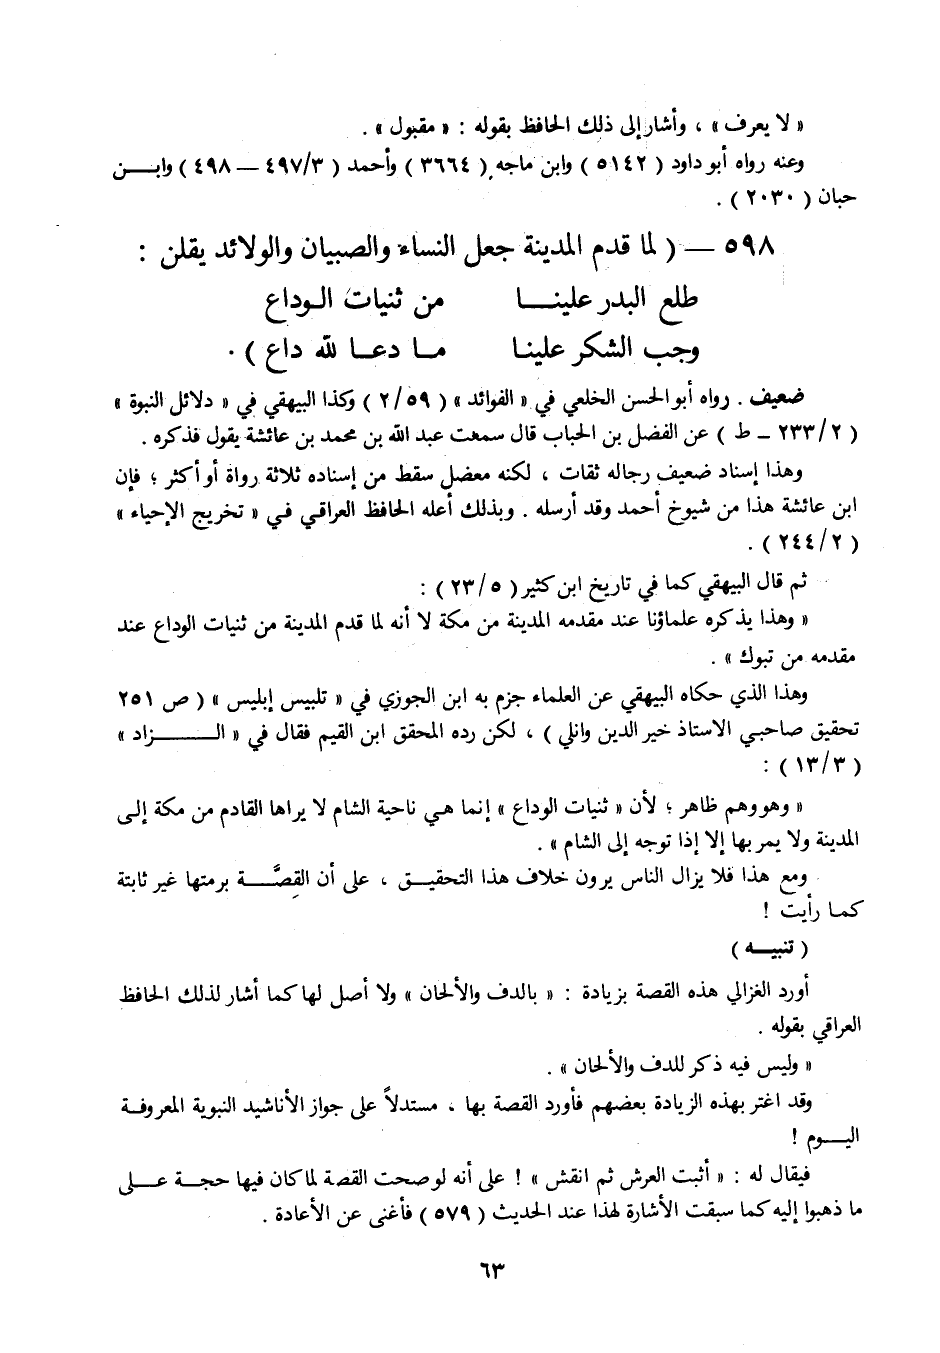 « لا يعرف » ، وأشار إلى ذلك الحافظ بقوله : « مقبول » .
وعنه رواه أبو داود ( ٥١٤٢ ) وابن ماجه ( ٣٦٦٤ ) وأحمد ( ٤٩٧/٣ ـ ٤٩٨ ) وابـــن
حبان ( ٢٠٣٠ ) .
٥٩٨ ـ ( لما قدم المدينة جعل النساء والصبيان والولائد يقلن :
طلع البدر علينـــا من ثنيات الـوداع
وجب الشكر علينا مـا دعـا لله داع ) .
ضعيف . رواه أبو الحسن الخلعي في « الفوائد » ( ٢/٥٩ ) وكذا البيهقي في « دلائل النبوة »
( ٢٣٣/٢ ـ ط ) عن الفضل بن الحباب قال سمعت عبد الله بن محمد بن عائشة يقول فذكره .
وهذا إسناد ضعيف رجاله ثقات ، لكنه معضل سقط من إسناده ثلاثة رواة أو أكثر ؛ فإن
ابن عائشة هذا من شيوخ أحمد وقد أرسله . وبذلك أعله الحافظ العراقي فـي « تخريج الإحياء »
( ٢٤٤/٢ ) .
ثم قال البيهقي كما في تاريخ ابن كثير ( ٢٣/٥ ) :
« وهذا يذكره علماؤنا عند مقدمه المدينة من مكة لا أنه لما قدم المدينة من ثنيات الوداع عند
مقدمه من تبوك » .
وهذا الذي حكاه البيهقي عن العلماء جزم به ابن الجوزي في « تلبيس إبليس » ( ص ٢٥١
تحقيق صاحبي الاستاذ خير الدين وانلي ) ، لكن رده المحقق ابن القيم فقال في « الـــــزاد »
( ١٣/٣ ) :
« وهو وهم ظاهر ؛ لأن « ثنيات الوداع » إنما هـي ناحية الشام لا يراها القادم من مكة إلـى
المدينة ولا يمر بها إلا إذا توجه إلى الشام » .
ومع هذا فلا يزال الناس يرون خلاف هذا التحقيـق ، على أن القِصَّـــة برمتها غير ثابتة
كمـا رأيت !
( تنبيـه )
أورد الغزالي هذه القصة بزيادة : « بالدف والألحان » ولا أصل لها كما أشار لذلك الحافظ
العراقي بقوله .
« وليس فيه ذكر للدف والألحان » .
وقد اغتر بهذه الزيادة بعضهم فأورد القصة بها ، مستدلاً على جواز الأناشيد النبوية المعروفـة
اليـوم !
فيقال له : « أثبت العرش ثم انقش » ! على أنه لو صحت القصة لما كان فيها حجـة علـى
ما ذهبوا إليه كما سبقت الأشارة لهذا عند الحديث ( ٥٧٩ ) فأغنى عن الأعادة .
٦٣